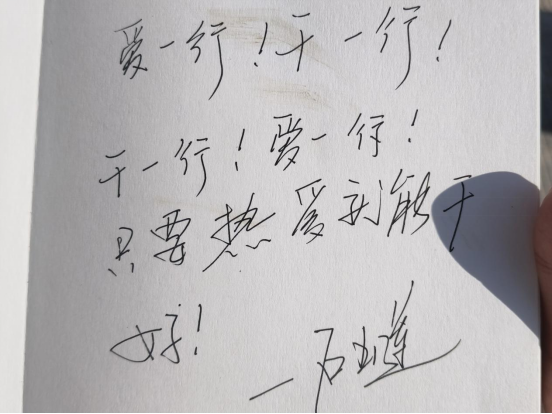 爱一行！干一行！
干一行！爱一行！
只要热爱就能干
好！